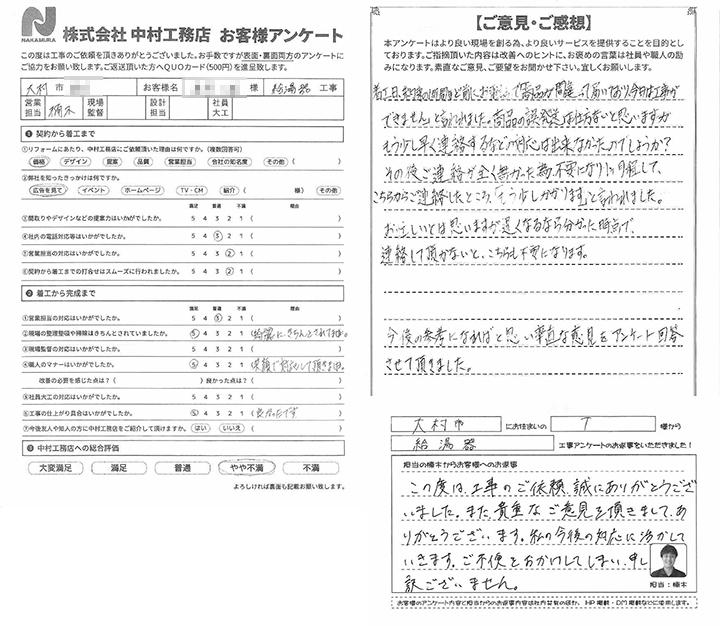 NAKAMURA
株式会社 中村工務店 お客様アンケート
この度は工事のご依頼を頂きありがとうございました。お手数ですが表面・裏面両方のアンケートに
ご協力をお願い致します。ご返送頂いた方へQUOカード(500円)を進呈致します。
大村 市 お客様名 様 給湯器 工事
営業担当 楠木 現場監督 設計担当 社員大工
❶契約から着工まで
①リフォームにあたり、中村工務店にご依頼頂いた理由は何ですか。(複数回答可)
価格 デザイン 提案 品質 営業担当 会社の知名度 その他( )
②弊社を知ったきっかけは何ですか。
広告を見て イベント ホームページ TV・CM 紹介( 様) その他
満足 普通 不満 理由
③間取りやデザインなどの提案力はいかがでしたか。 5 4 3 2 1 ( )
④社内の電話対応等はいかがでしたか。 5 4 3 2 1 ( )
⑤営業担当の対応はいかがでしたか。 5 4 3 2 1 ( )
⑥契約から着工までの打合せはスムーズに行われましたか。 5 4 3 2 1 ( )
❷着工から完成まで
満足 普通 不満 理由
①営業担当の対応はいかがでしたか。 5 4 3 2 1 ( )
②現場の整理整頓や掃除はきちんとされていましたか。 5 4 3 2 1 (綺麗にきちんとされてます。)
③現場監督の対応はいかがでしたか。 5 4 3 2 1 ( )
④職人のマナーはいかがでしたか。 5 4 3 2 1 (笑顔で対応して頂きました。)
改善の必要を感じた点は?( ) 良かった点は?( )
⑤社員大工の対応はいかがでしたか。 5 4 3 2 1 ( )
⑥工事の仕上がり具合はいかがでしたか。 5 4 3 2 1 (良かったです)
⑦今後友人や知人の方に中村工務店をご紹介して頂けますか。 はい いいえ ( )
❸中村工務店への総合評価
大変満足 満足 普通 やや不満 不満
よろしければ裏面も記載お願い致します。
【ご意見・ご感想】
本アンケートはより良い現場を創る為、より良いサービスを提供することを目的と
しております。ご指摘頂いた内容は改善へのヒントに、お褒めの言葉は社員や職人の励
みになります。素直なご意見、ご要望をお聞かせ下さい。宜しくお願いします。
着工日、程度の時間ほど前にお電話で「商品が間違って届いており今日は工事が
できません」と言われました。商品の誤発送は仕方ないと思いますが
もう少し早く連絡するなどの対応は出来なかったのでしょうか?
その後ご連絡が全く無かった為、不安になり1ヶ月程して、
こちらからご連絡したところ、「もう少しかかります」と言われました。
お忙しいとは思いますが遅くなるなら分かった時点で、
連絡して頂かないと、こちらも不安になります。
今後の参考になればと思い率直な意見をアンケート回答
させて頂きました。
大村市 にお住まいの T 様から
給湯器 工事アンケートのお返事をいただきました!
担当の楠木からお客様へのお返事
この度は、工事のご依頼、誠にありがとうござ
いました。また、貴重なご意見を頂きまして、あ
りがとうございます。私の今後の対応に活かして
いきます。ご不便をおかけしてしまい、申し
訳ございません。
担当:楠木
お客様のアンケート内容と担当からのお返事内容は社内共有のほか、HP掲載・DM掲載などに使用します。